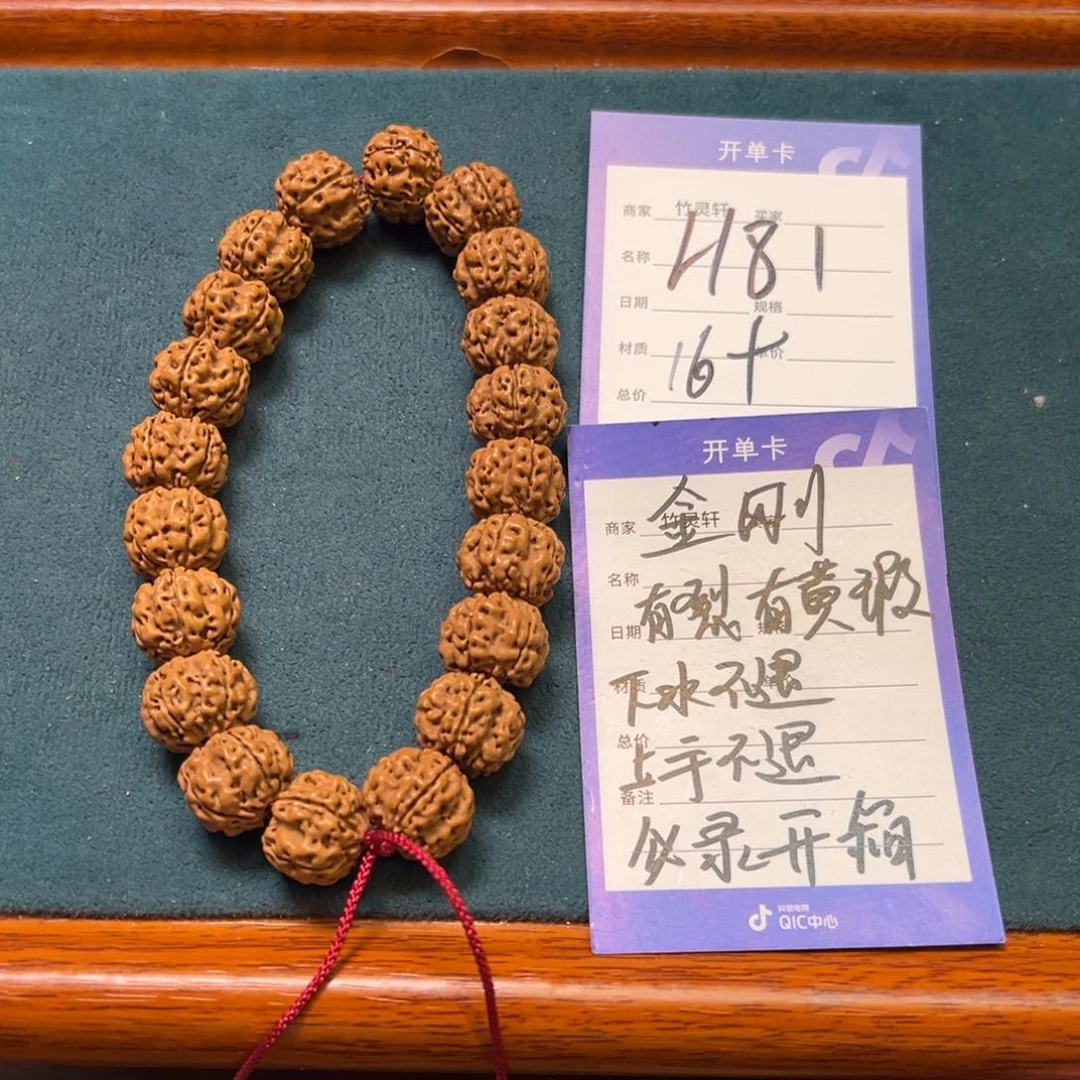 开单卡
商家 竹灵轩 买家
名称 H81
日期 规格
材质 16+ 单价
总价
开单卡
金刚
商家 竹灵轩
名称
有裂有黄瑕
日期 规格
下水不退
材质 单
总价
上手不退
备注
必录开箱
抖音电商
QIC中心